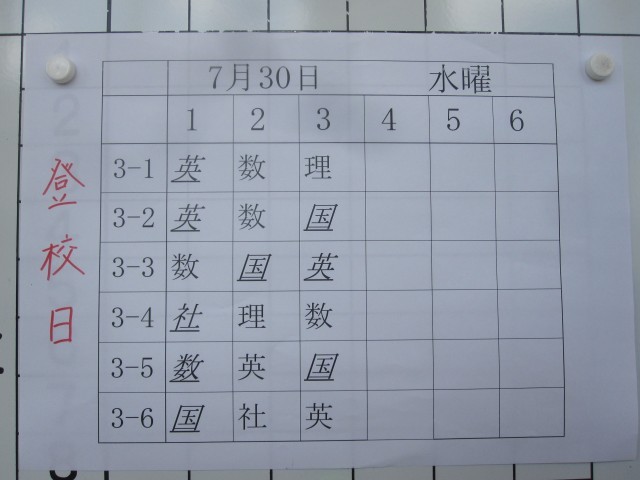 7月30日 水曜
1 2 3 4 5 6
3-1 英 数 理
3-2 英 数 国
3-3 数 国 英
3-4 社 理 数
3-5 数 英 国
3-6 国 社 英
登校日